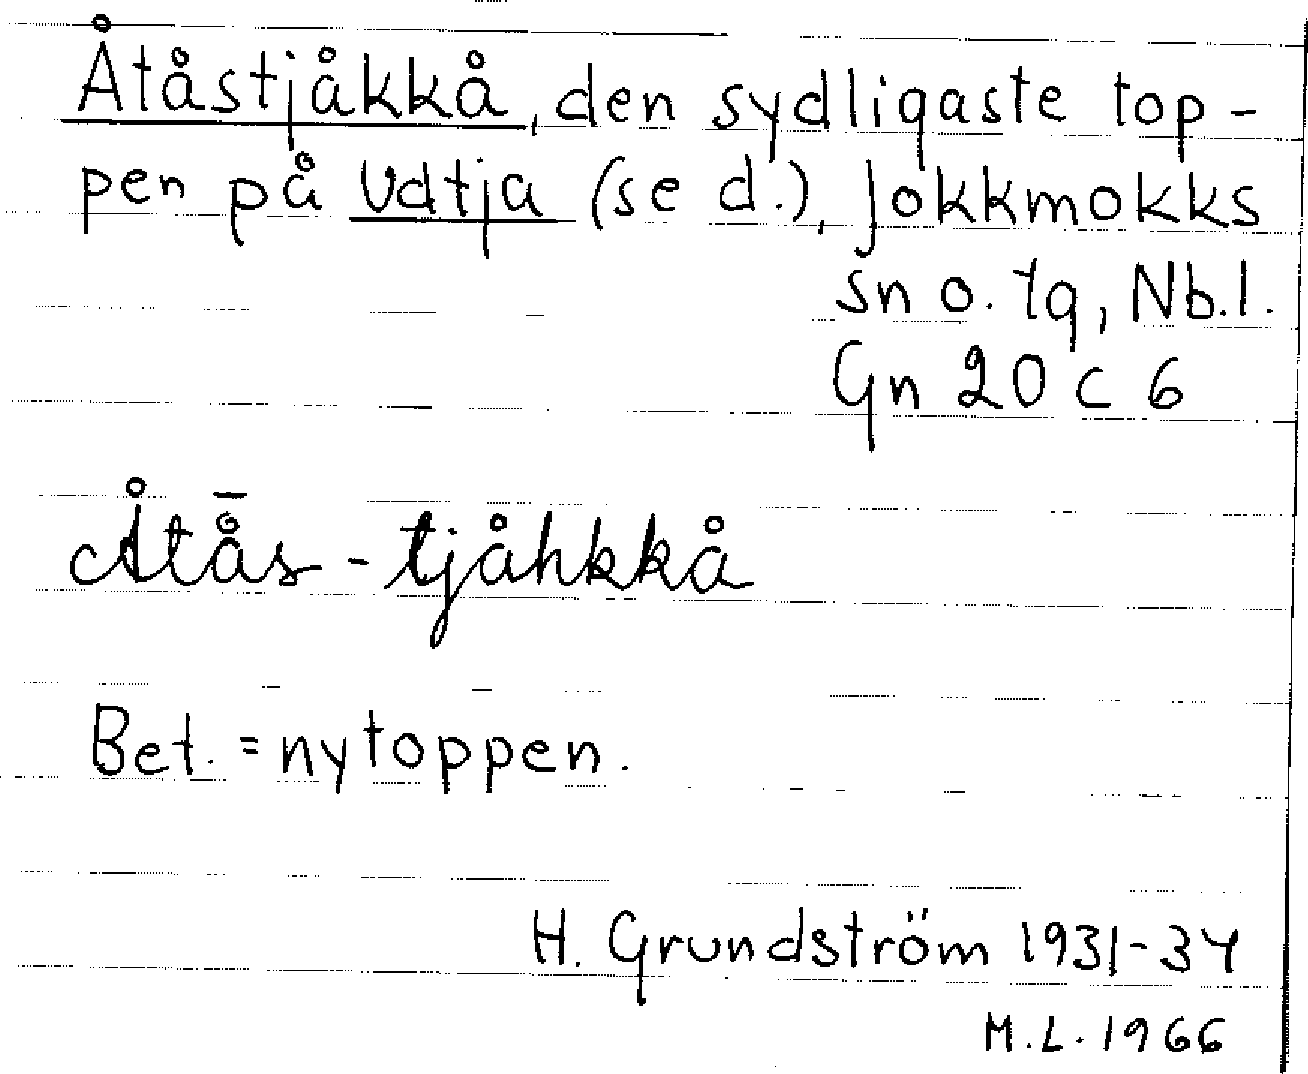 Åtåstjåkkå, den sydligaste top-
pen på Udtja (se d.), Jokkmokks
sn o. tg, Nb.l.
Gn 20 c 6
Åtå̄s-tjåhkkå
Bet. = nytoppen.
H. Grundström 1931-34
M.L. 1966